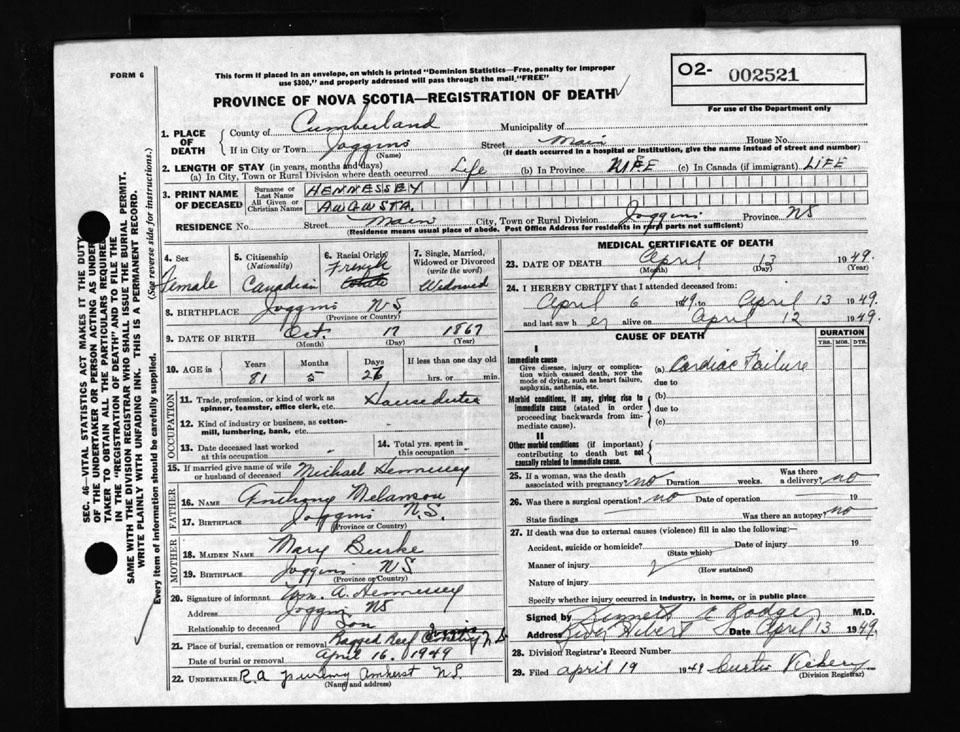 FORM 6
This form if placed in an envelope, on which is printed "Dominion Statistics—Free, penalty for improper
use $300," and properly addressed will pass through the mail, "FREE"
PROVINCE OF NOVA SCOTIA—REGISTRATION OF DEATH
O2- 002521
For use of the Department only
SEC. 46—VITAL STATISTICS ACT MAKES IT THE DUTY
OF THE UNDERTAKER OR PERSON ACTING AS UNDER-
TAKER TO OBTAIN ALL THE PARTICULARS REQUIRED
IN THE "REGISTRATION OF DEATH" AND TO FILE THE
SAME WITH THE DIVISION REGISTRAR WHO SHALL ISSUE THE BURIAL PERMIT.
WRITE PLAINLY WITH UNFADING INK. THIS IS A PERMANENT RECORD.
Every item of information should be carefully supplied. (See reverse side for instructions.)
1. PLACE OF DEATH
County of Cumberland Municipality of
If in City or Town Joggins Street Main House No.
(Name) (If death occurred in a hospital or institution, give the name instead of street and number)
2. LENGTH OF STAY (in years, months and days)
(a) In City, Town or Rural Division where death occurred Life (b) In Province LIFE (c) In Canada (if immigrant) LIFE
3. PRINT NAME OF DECEASED
Surname or Last Name HENNESSEY
All Given or Christian Names AUGUSTA
RESIDENCE No. Street Main City, Town or Rural Division Joggins Province NS
(Residence means usual place of abode. Post Office Address for residents in rural parts not sufficient)
4. Sex Female
5. Citizenship (Nationality) Canadian
6. Racial Origin French White
7. Single, Married, Widowed or Divorced (write the word) Widowed
8. BIRTHPLACE Joggins NS
(Province or Country)
9. DATE OF BIRTH Oct. 17 1867
(Month) (Day) (Year)
10. AGE in Years 81 Months 5 Days 26 If less than one day old hrs. or min.
OCCUPATION
11. Trade, profession, or kind of work as spinner, teamster, office clerk, etc.
12. Kind of industry or business, as cotton-mill, lumbering, bank, etc.
13. Date deceased last worked at this occupation
14. Total yrs. spent in this occupation
15. If married give name of wife or husband of deceased Michael Hennessey
FATHER
16. NAME Anthony Melanson
17. BIRTHPLACE Joggins NS.
(Province or Country)
MOTHER
18. MAIDEN NAME Mary Burke
19. BIRTHPLACE Joggins NS
(Province or Country)
20. Signature of informant Wm. A. Hennessey
Address Joggins NS
Relationship to deceased Son
21. Place of burial, cremation or removal Ragged Reef
Date of burial or removal April 16, 1949
22. UNDERTAKER R.A. Amherst NS.
(Name and address)
MEDICAL CERTIFICATE OF DEATH
23. DATE OF DEATH April 13 1949.
(Month) (Day) (Year)
24. I HEREBY CERTIFY that I attended deceased from:
April 6 1949 to April 13 1949.
and last saw her alive on April 12 1949.
CAUSE OF DEATH
DURATION
YRS. MOS. DYS.
I
Immediate cause
Give disease, injury or complication which caused death, not the mode of dying, such as heart failure, asphyxia, asthenia, etc.
(a) Cardiac Failure
due to
Morbid conditions, if any, giving rise to immediate cause (stated in order proceeding backwards from immediate cause).
(b)
due to
(c)
II
Other morbid conditions (if important) contributing to death but not causally related to immediate cause.
25. If a woman, was the death associated with pregnancy? no Duration weeks. Was there a delivery? no
26. Was there a surgical operation? no Date of operation 19
State findings Was there an autopsy? no
27. If death was due to external causes (violence) fill in also the following:—
Accident, suicide or homicide? Date of injury 19
(State which)
Manner of injury
(How sustained)
Nature of injury
Specify whether injury occurred in industry, in home, or in public place
Signed by Kenneth E Rodger M.D.
Address River Hebert Date April 13 1949.
28. Division Registrar's Record Number
29. Filed april 19 1949 Curtis Vickery
(Division Registrar)